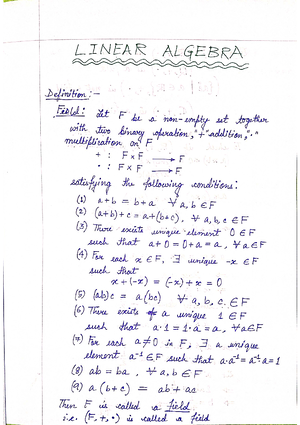 LINEAR ALGEBRA
Definition :-
Field : Let F be a non-empty set together
with two binary operation, "+" addition, "·"
multiplication on F
+ : F×F → F
· : F×F → F
satisfying the following conditions:
(1) a+b = b+a ∀ a,b ∈ F
(2) (a+b)+c = a+(b+c), ∀ a,b,c ∈ F
(3) There exists unique element 0 ∈ F
such that a+0 = 0+a = a, ∀ a ∈ F
(4) For each x ∈ F, ∃ unique -x ∈ F
such that
x+(-x) = (-x)+x = 0
(5) (ab)c = a(bc) ∀ a,b,c ∈ F
(6) There exists of a unique 1 ∈ F
such that a·1 = 1·a = a, ∀ a ∈ F
(7) For each a≠0 in F, ∃ a unique
element a⁻¹ ∈ F such that a·a⁻¹ = a⁻¹a = 1
(8) ab = ba, ∀ a,b ∈ F
(9) a(b+c) = ab+ac
Then F is called a field
i.e. (F,+,·) is called a field